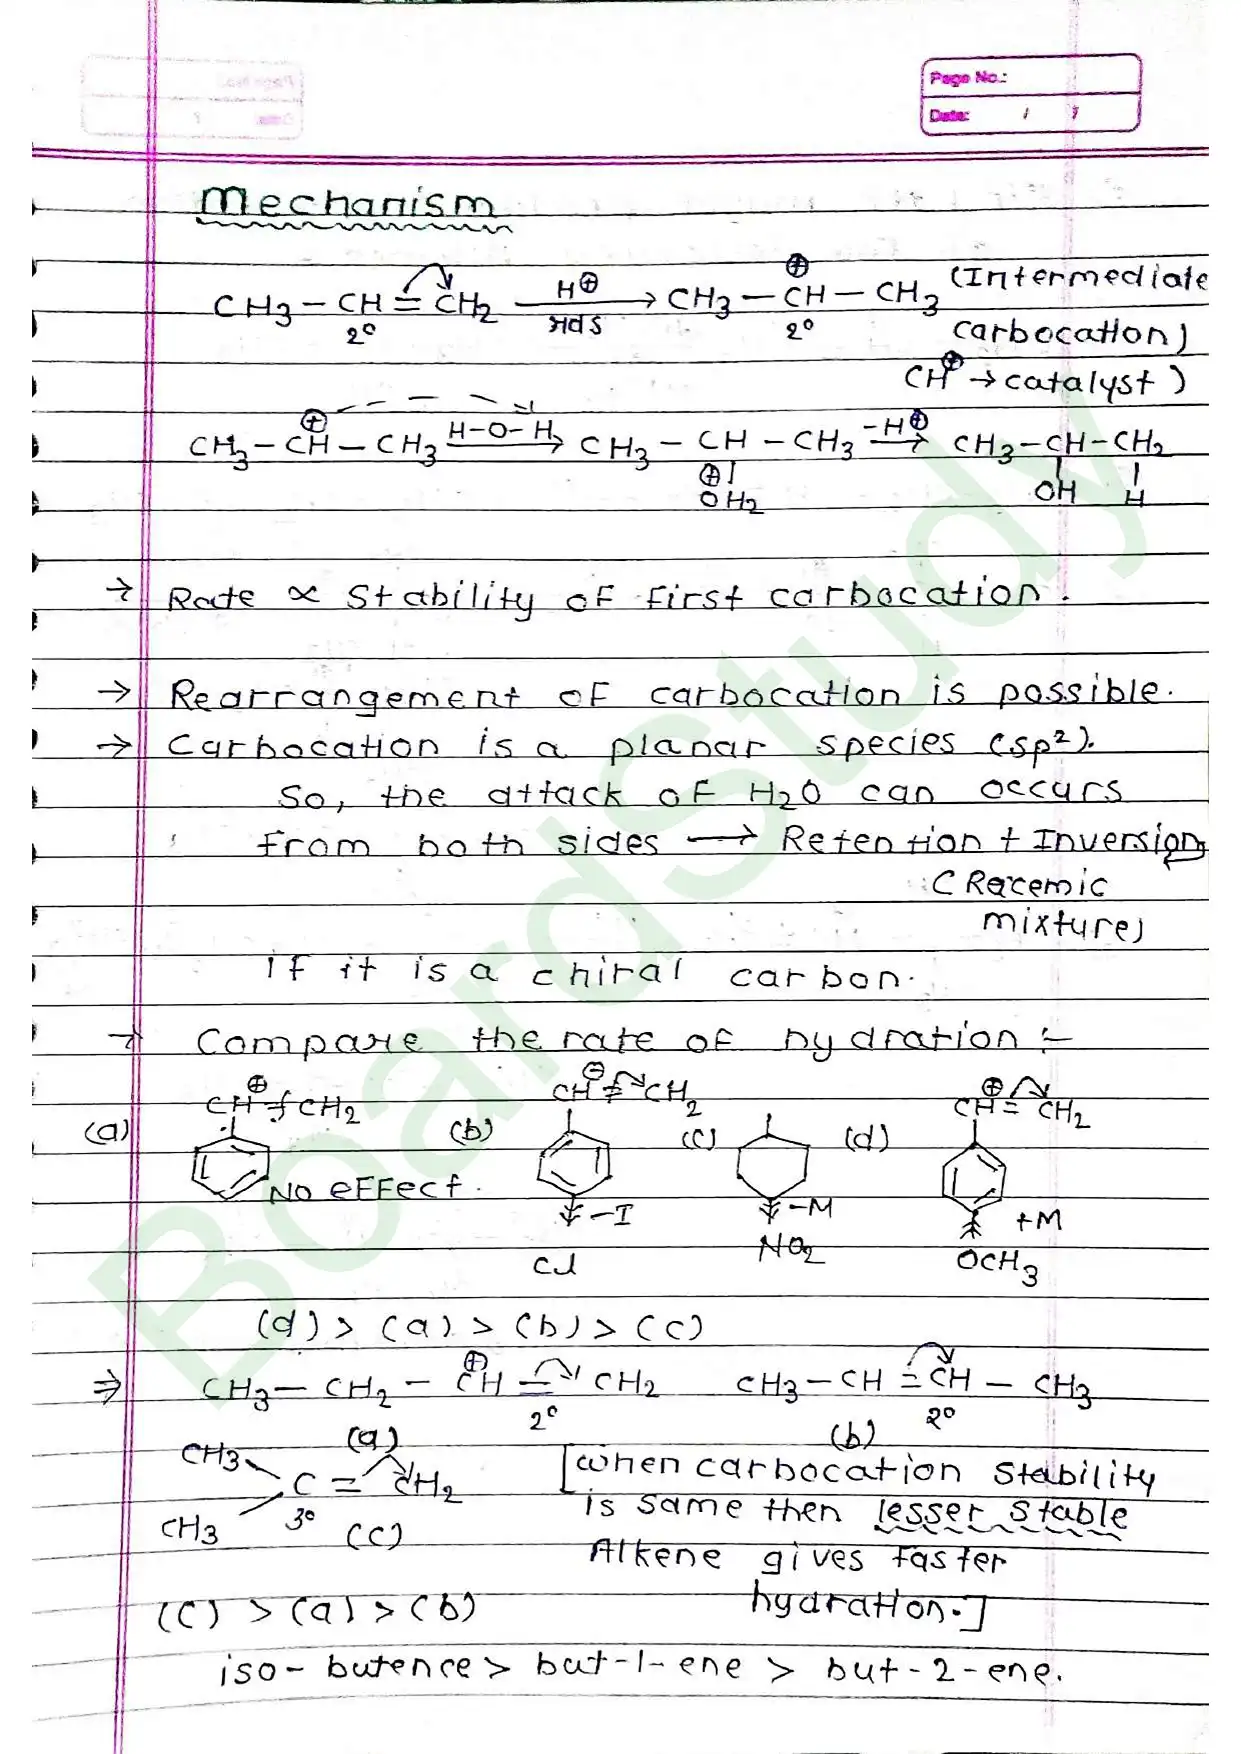 Page No.:
Date: / /
Mechanism
CH3 – CH = CH2 —H⊕→ CH3 – CH – CH3 (Intermediate
2° rds ⊕ 2° carbocation)
CH⊕ → catalyst )
CH3 – CH – CH3 —H–O–H→ CH3 – CH – CH3 —–H⊕→ CH3 – CH – CH2
⊕ ⊕ OH2 OH H
→ Rate ∝ Stability of first carbocation.
→ Rearrangement of carbocation is possible.
→ Carbocation is a planar species (sp²).
So, the attack of H2O can occurs
from both sides → Retention + Inversion
( Racemic
mixture)
if it is a chiral carbon.
→ Compare the rate of hydration :-
⊕ ⊖ ⊕
CH = CH2 CH = CH2 CH = CH2
(a) (b) (c) (d)
No effect. –I –M +M
Cl NO2 OCH3
(d) > (a) > (b) > (c)
⇒ CH3 – CH2 – CH = CH2 CH3 – CH = CH – CH3
⊕ 2° 2°
(a) (b)
CH3 C = CH2 [when carbocation stability
CH3 3° (c) is same then lesser stable
Alkene gives faster
hydration.]
(c) > (a) > (b)
iso - butence > but-1-ene > but-2-ene.
BoardStudy